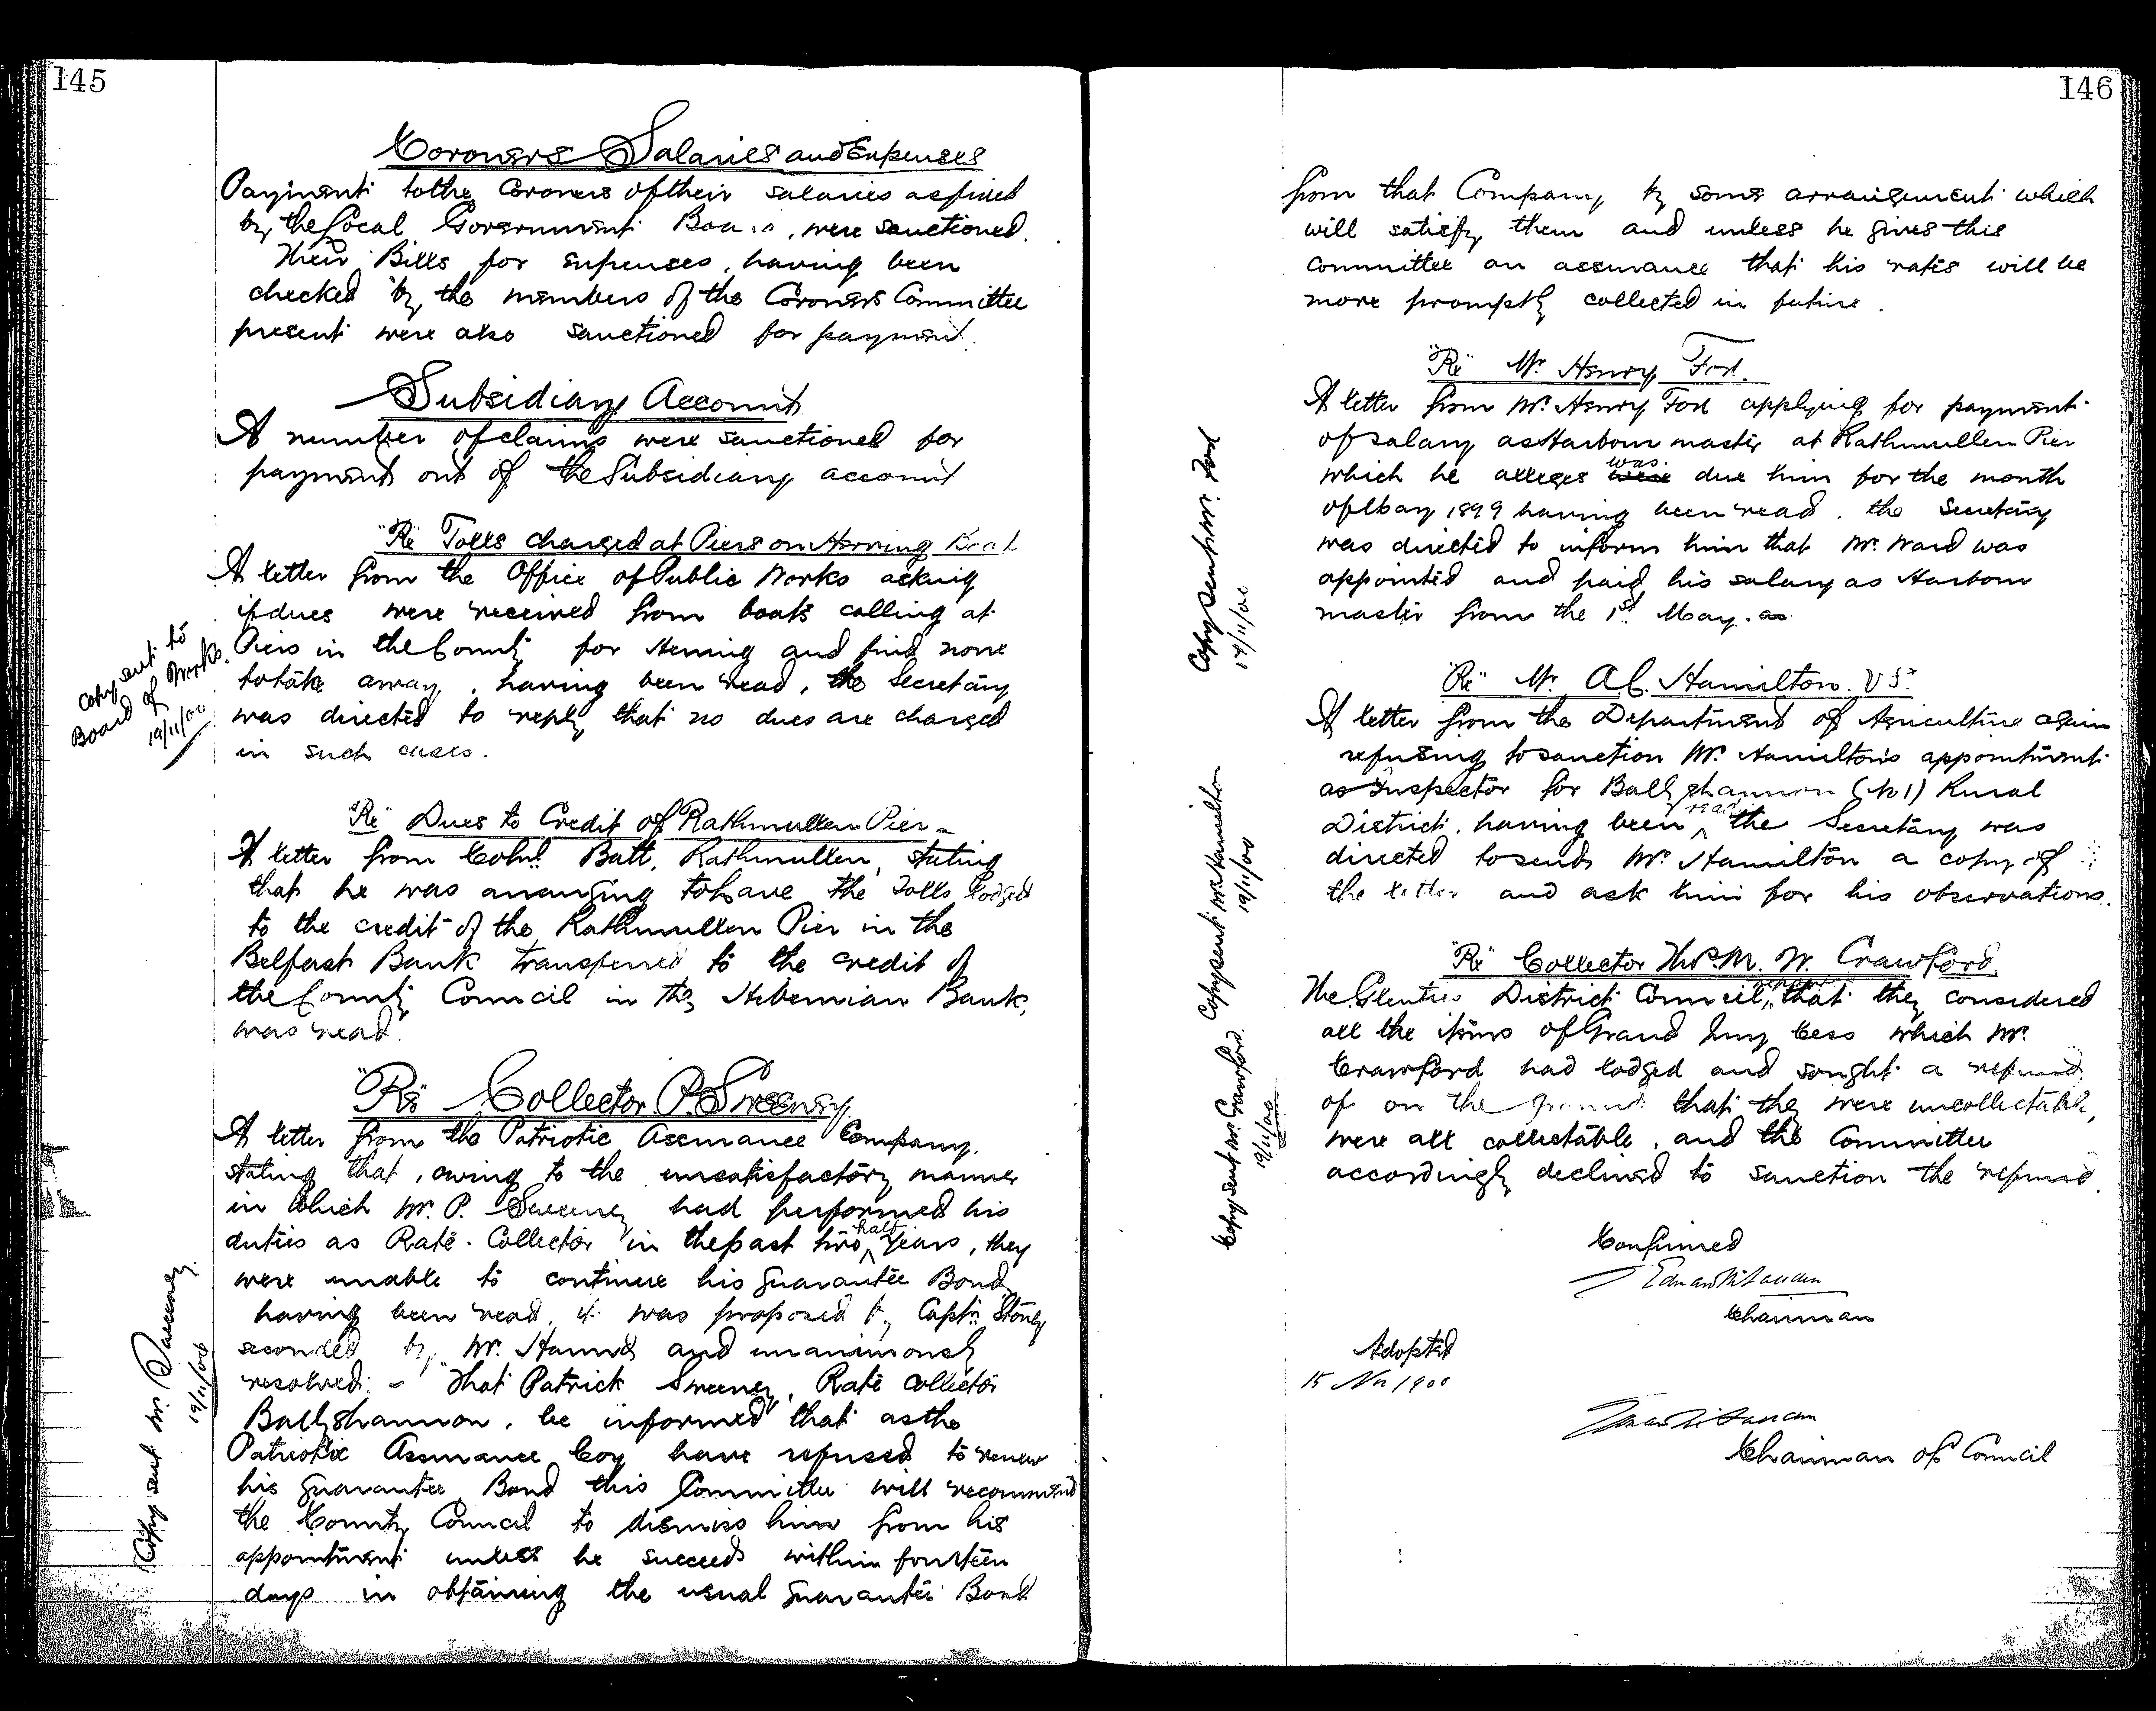 145
Coroners Salaries and Expenses
Payment to the Coroners of their salaries as fixed
by the Local Government Board, were sanctioned.
Their Bills for expenses, having been
checked by the members of the Coroners Committee
present were also sanctioned for payment.
Subsidiary Account
A number of claims were sanctioned for
payment out of the Subsidiary account
"Re" Tolls charged at Piers on Herring Boat
A letter from the Office of Public Works asking
if dues were received from boats calling at
Piers in the County for Herring and find none
to take away, having been read, the Secretary
was directed to reply that no dues are charged
in such cases.
Copy sent to
Board of Works.
19/11/00
"Re" Dues to Credit of Rathmullen Pier -
A letter from Colnl. Batt, Rathmullen, stating
that he was arranging to have the Tolls lodged
to the credit of the Rathmullen Pier in the
Belfast Bank transferred to the credit of
the County Council in the Hibernian Bank,
was read.
"Re" Collector P. Sweeney.
A letter from the Patriotic Assurance Company,
stating that, owing to the unsatisfactory manner
in which Mr. P. Sweeney had performed his
duties as Rate-Collector in the past two half years, they
were unable to continue his guarantee Bond
having been read, it was proposed by Captn. Stoney
seconded by Mr. Hannd and unanimously
resolved: - "That Patrick Sweeney, Rate collector
Ballyshannon, be informed that as the
Patriotic Assurance Coy have refused to renew
his guarantee Bond this Committee will recommend
the County Council to dismiss him from his
appointment unless he succeeds within fourteen
days in obtaining the usual guarantee Bond
Copy sent Mr. Sweeney.
19/11/00
146
from that Company by some arrangement which
will satisfy them and unless he gives this
Committee an assurance that his rates will be
more promptly collected in future.
"Re" Mr. Henry Ford.
A letter from Mr. Henry Ford applying for payment
of salary as Harbour master at Rathmullen Pier
which he alleges was were due him for the month
of May 1899 having been read, the Secretary
was directed to inform him that Mr. Ward was
appointed and paid his salary as Harbour
master from the 1st. May. as
Copy sent Mr. Ford
19/11/00
"Re" Mr. A C. Hamilton. V S."
A letter from the Department of Agriculture again
refusing to sanction Mr. Hamilton's appointment
as Inspector for Ballyshannon (No 1) Rural
District, having been read the Secretary was
directed to send Mr. Hamilton a copy of
the letter and ask him for his observations.
Copy sent Mr. Hamilton
19/11/00
"Re" Collector Thos. M. W. Crawford.
The Glenties District Council, that they considered
all the items of Grand Jury Cess which Mr.
Crawford had lodged and sought a refund
of on the ground that they were uncollectable,
were all collectable, and the Committee
accordingly declined to sanction the refund.
Copy sent Mr. Crawford.
19/11/00
Confirmed
Chairman
Adopted
15 Nov 1900
Chairman of Council